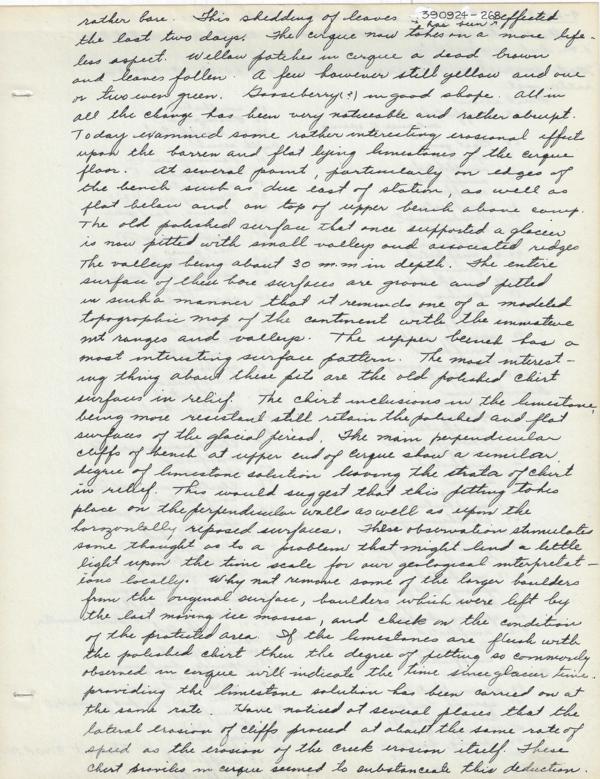 390924-268
rather bare. This shedding of leaves has been effected
the last two days. The cirque now takes on a more life-
less aspect. Willow patches in cirque a dead brown
and leaves fallen. A few however still yellow and one
or two even green. Gooseberry(?) in good shape. All in
all the change has been very noticeable and rather abrupt.
Today examined some rather interesting erosional effects
upon the barren and flat lying limestones of the cirque
floor. At several point, particularly on edges of
the bench such as due east of station, as well as
flat below and on top of upper bench above camp.
The old polished surface that once supported a glacier
is now pitted with small valleys and associated redges
The valleys being about 30 m.m in depth. The entire
surface of these bare surfaces are groove and pitted
in such a manner that it reminds one of a modeled
topographic map of the continent with the immature
mt ranges and valleys. The upper bench has a
most interesting surface pattern. The most interest-
ing thing about these pits are the old polished chirt
surfaces in relief. The chirt inclusions in the limestone,
being more resistant still retain the polished and flat
surfaces of the glacial period. The main perpendicular
cliffs of bench at upper end of cirque show a similar
degree of limestone solution leaving the strata of chirt
in relief. This would suggest that this pitting takes
place on the perpendicular walls as well as upon the
horozontally reposed surfaces. These observation stimulates
some thought as to a problem that might lend a little
light upon the time scale for our geological interpretat-
ions locally. Why not remove some of the larger boulders
from the original surface, boulders which were left by
the last moving ice masses, and check on the condition
of the protected area. If the limestones are flush with
the polished chirt then the degree of pitting so commonly
observed in cirque will indicate the time since glacier time.
providing the limestone solution has been carried on at
the same rate. Have noticed at several places that the
lateral erosion of cliffs proceed at about the same rate of
speed as the erosion of the creek erosion itself. These
chert profiles in cirque seemed to this deduction.